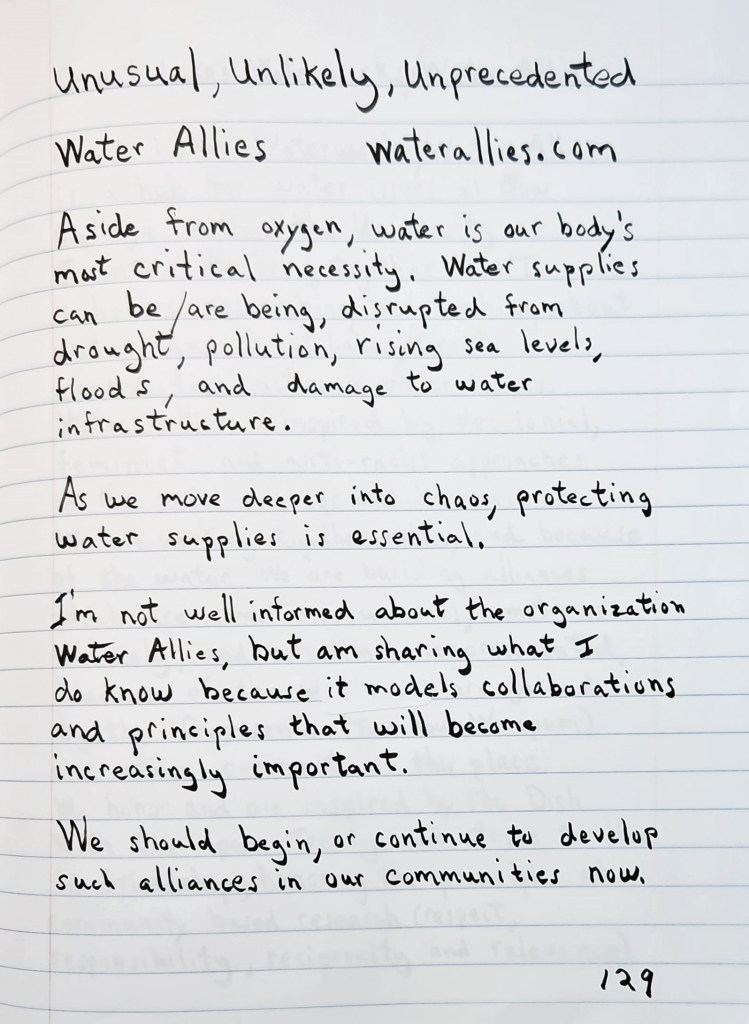 Unusual, Unlikely, Unprecedented
Water Allies waterallies.com
Aside from oxygen, water is our body's
most critical necessity. Water supplies
can be/are being, disrupted from
drought, pollution, rising sea levels,
floods, and damage to water
infrastructure.
As we move deeper into chaos, protecting
water supplies is essential.
I'm not well informed about the organization
Water Allies, but am sharing what I
do know because it models collaborations
and principles that will become
increasingly important.
We should begin, or continue to develop
such alliances in our communities now.
129